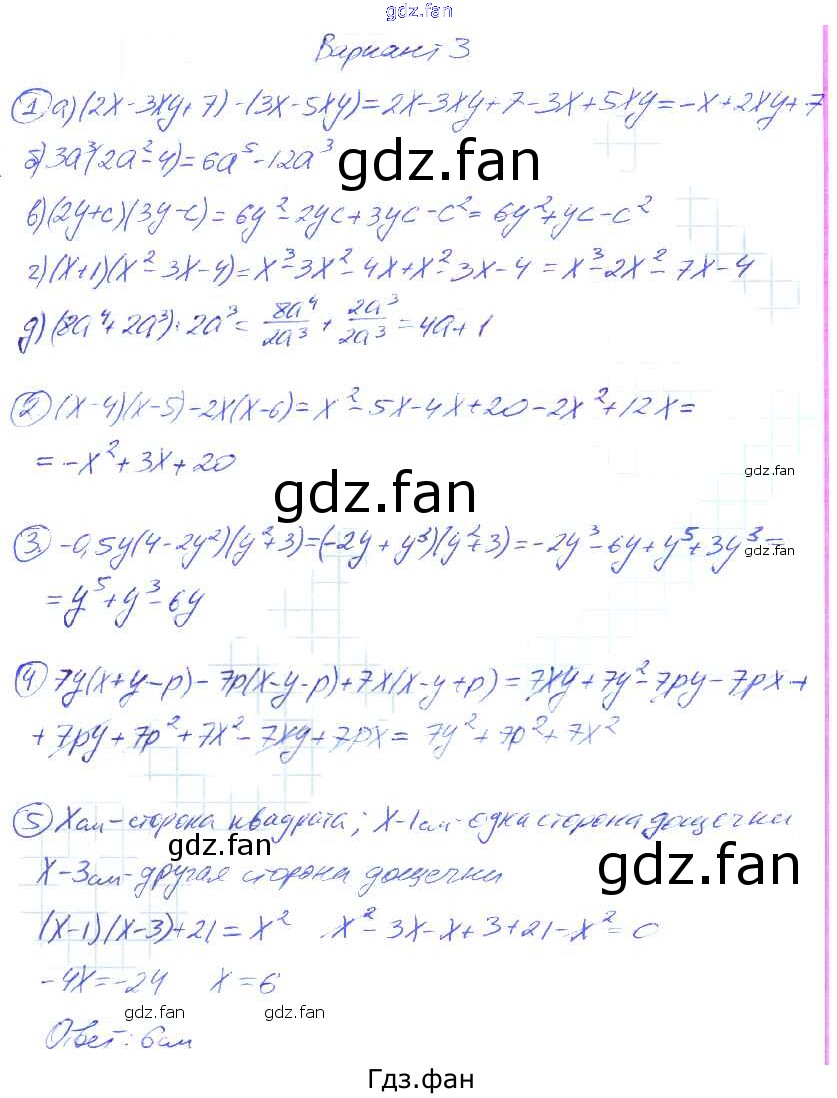 gdz.fan
Вариант 3
① а) (2x - 3xy + 7) - (3x - 5xy) = 2x - 3xy + 7 - 3x + 5xy = -x + 2xy + 7
б) 3a³(2a² - 4) = 6a⁵ - 12a³
gdz.fan
в) (2y + c)(3y - c) = 6y² - 2yc + 3yc - c² = 6y² + yc - c²
г) (x + 1)(x² - 3x - 4) = x³ - 3x² - 4x + x² - 3x - 4 = x³ - 2x² - 7x - 4
д) (8a⁴ + 2a³) : 2a³ = 8a⁴/2a³ + 2a³/2a³ = 4a + 1
② (x - 4)(x - 5) - 2x(x - 6) = x² - 5x - 4x + 20 - 2x² + 12x =
= -x² + 3x + 20
gdz.fan
gdz.fan
③ -0,5y(4 - 2y²)(y² + 3) = (-2y + y³)(y² + 3) = -2y³ - 6y + y⁵ + 3y³ =
gdz.fan
= y⁵ + y³ - 6y
④ 7y(x + y - p) - 7p(x - y - p) + 7x(x - y + p) = 7xy + 7y² - 7py - 7px +
+ 7py + 7p² + 7x² - 7xy + 7px = 7y² + 7p² + 7x²
⑤ Xсм - сторона квадрата; X - 1см - одна сторона дощечки
gdz.fan
X - 3см - другая сторона дощечки
gdz.fan
(x - 1)(x - 3) + 21 = x² x² - 3x - x + 3 + 21 - x² = 0
-4x = -24 x = 6
gdz.fan gdz.fan
Ответ: 6см
Гдз.фан